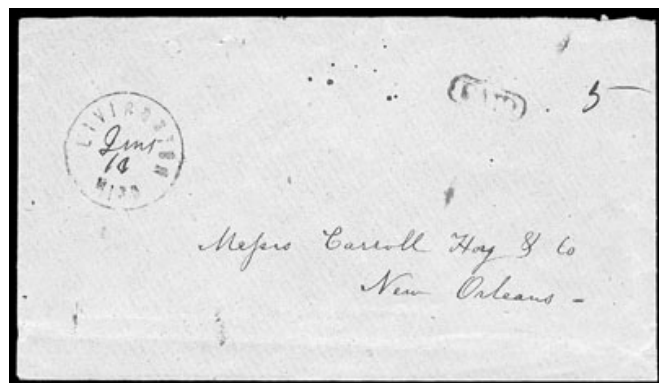 LIVINGSTON
MISS
PAID
5
Messrs Carroll Hoy & Co
New Orleans -